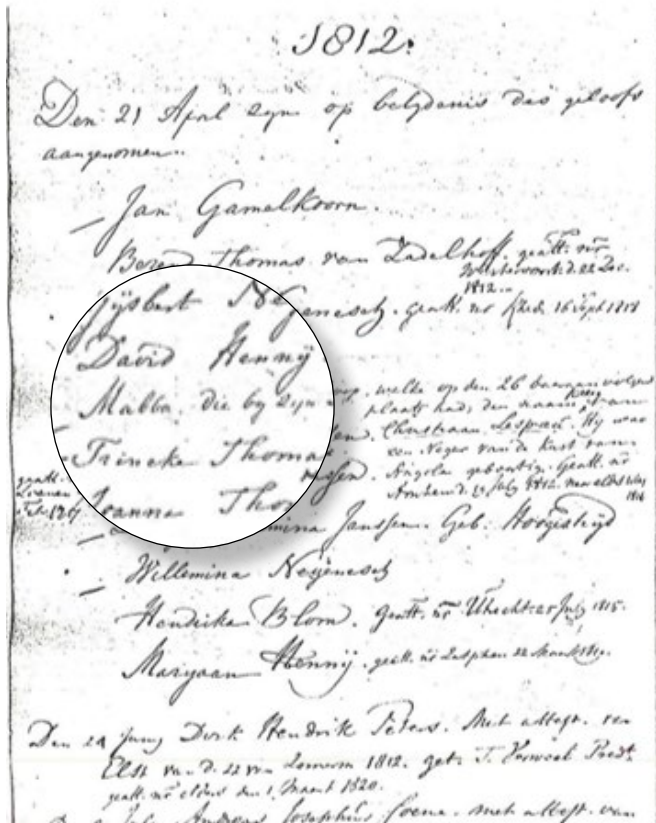 1812.
Den 21 April zyn op belydenis des geloofs
aangenomen.
Jan Gamelkoorn.
Berend Thomas van Zadelhoff. geatt. nr
Westervoort d. 22 Dec.
1812.
Gysbert Neijenesch. geatt. nr Rheden 16 Sept 1818
David Hennij
Mabba. die by zyn doop, welke op den 26 daaraanvolgend
plaats had, den naam kreeg van
Christiaan Hy was
een Neger van de Kust van
Angola geboortig. Geatt. nr
Arnhem d. July 1812.
Trineke Thomassen.
Joanna
Janssen. Geb. Hoogstryd
Willemina Neijenesch
Hendrika Blom. geatt. nr Utrecht 25 July 1815.
Maryaan Hennij. geatt. nr Zutphen 22 Maart
Den 24 Juny Derk Hendrik Peters. Met attest. van
Elst van d. 22 van Zomerm 1812. get. T. Verweel Predt.
geatt. nr elders den 1 Maart 1820.
Andreas Josephus Coene. met attest. van